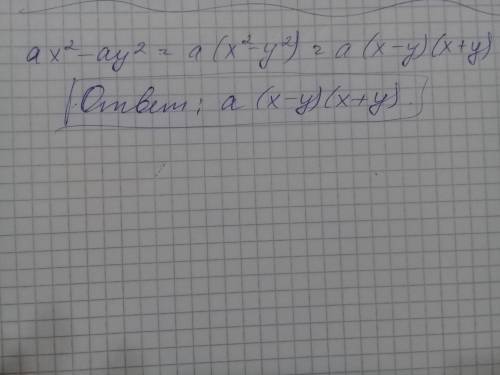 ax² - ay² = a (x² - y²) = a (x - y)(x + y)
Ответ: a (x - y)(x + y)